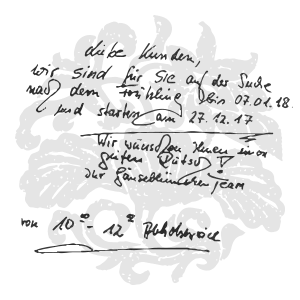 Liebe Kunden,
wir sind für Sie auf der Suche
nach dem Frühling bis 07.01.18
und starten am 27.12.17
Wir wünschen Ihnen einen
guten Rutsch!
Ihr Gänseblümchen Team
von 10⁰⁰ - 12⁰⁰ Abholbereich